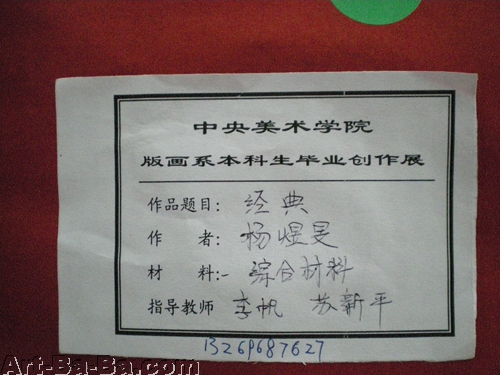 中央美术学院
版画系本科生毕业创作展
作品题目: 经典
作 者: 杨煜旻
材 料:- 综合材料
指导教师 李帆 苏新平
13269687627
Art-Ba-Ba.com